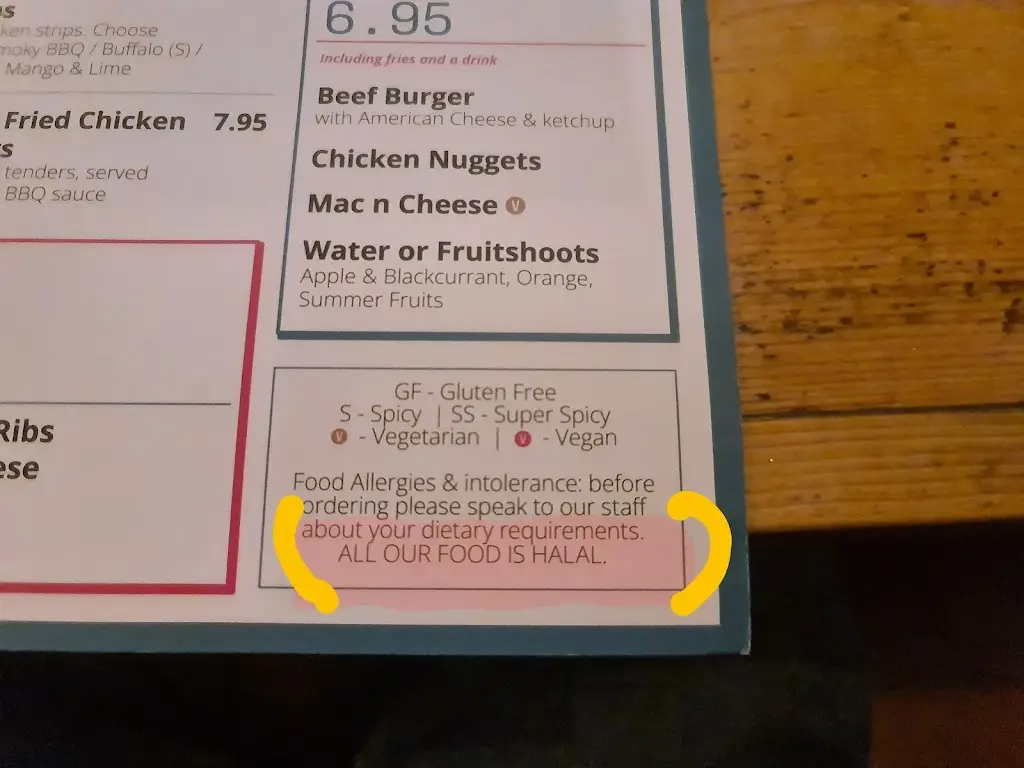 ken strips. Choose
moky BBQ / Buffalo (S) /
Mango & Lime
Fried Chicken 7.95
tenders, served
BBQ sauce
Ribs
6.95
Including fries and a drink
Beef Burger
with American Cheese & ketchup
Chicken Nuggets
Mac n Cheese V
Water or Fruitshoots
Apple & Blackcurrant, Orange,
Summer Fruits
GF - Gluten Free
S - Spicy | SS - Super Spicy
V - Vegetarian | V - Vegan
Food Allergies & intolerance: before
ordering please speak to our staff
about your dietary requirements.
ALL OUR FOOD IS HALAL.